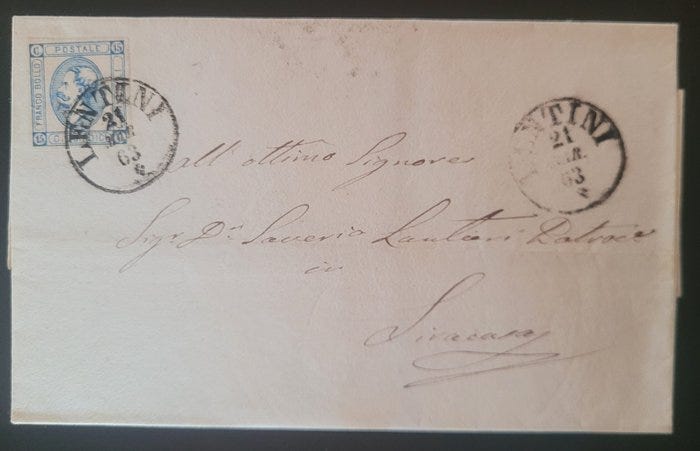 C POSTALE 15
FRANCO BOLLO
15
LENTINI
21
63
LENTINI
21
MAR.
63
all'ottimo Signore
Sigr. Dn. Saverio Lantieri
in
Siracusa